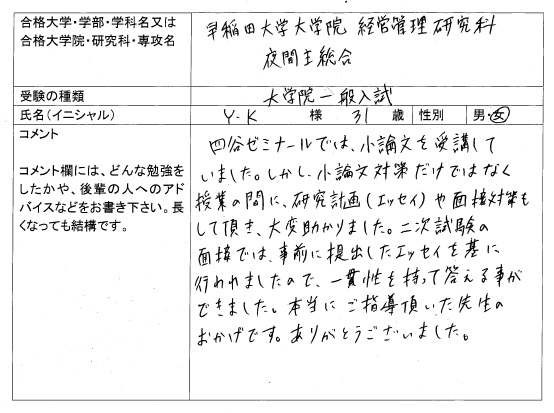 合格大学・学部・学科名又は
合格大学院・研究科・専攻名
早稲田大学大学院 経営管理研究科
夜間主総合
受験の種類
大学院一般入試
氏名（イニシャル）
Y-K 様 31 歳 性別 男・女
コメント
コメント欄には、どんな勉強を
したかや、後輩の人へのアド
バイスなどをお書き下さい。長
くなっても結構です。
四谷ゼミナールでは、小論文を受講して
いました。しかし、小論文対策だけではなく
授業の間に、研究計画（エッセイ）や面接対策も
して頂き、大変助かりました。二次試験の
面接では、事前に提出したエッセイを基に
行われましたので、一貫性を持って答える事が
できました。本当にご指導頂いた先生の
おかげです。ありがとうございました。